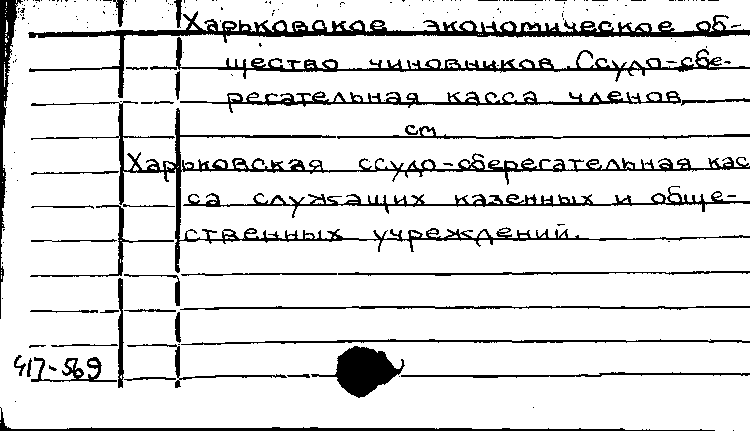 Харьковское экономическое об-
щество чиновников. Ссудо-сбе-
регательная касса членов
см.
Харьковская ссудо-сберегательная кас
са служащих казенных и обще-
ственных учреждений.
417-569